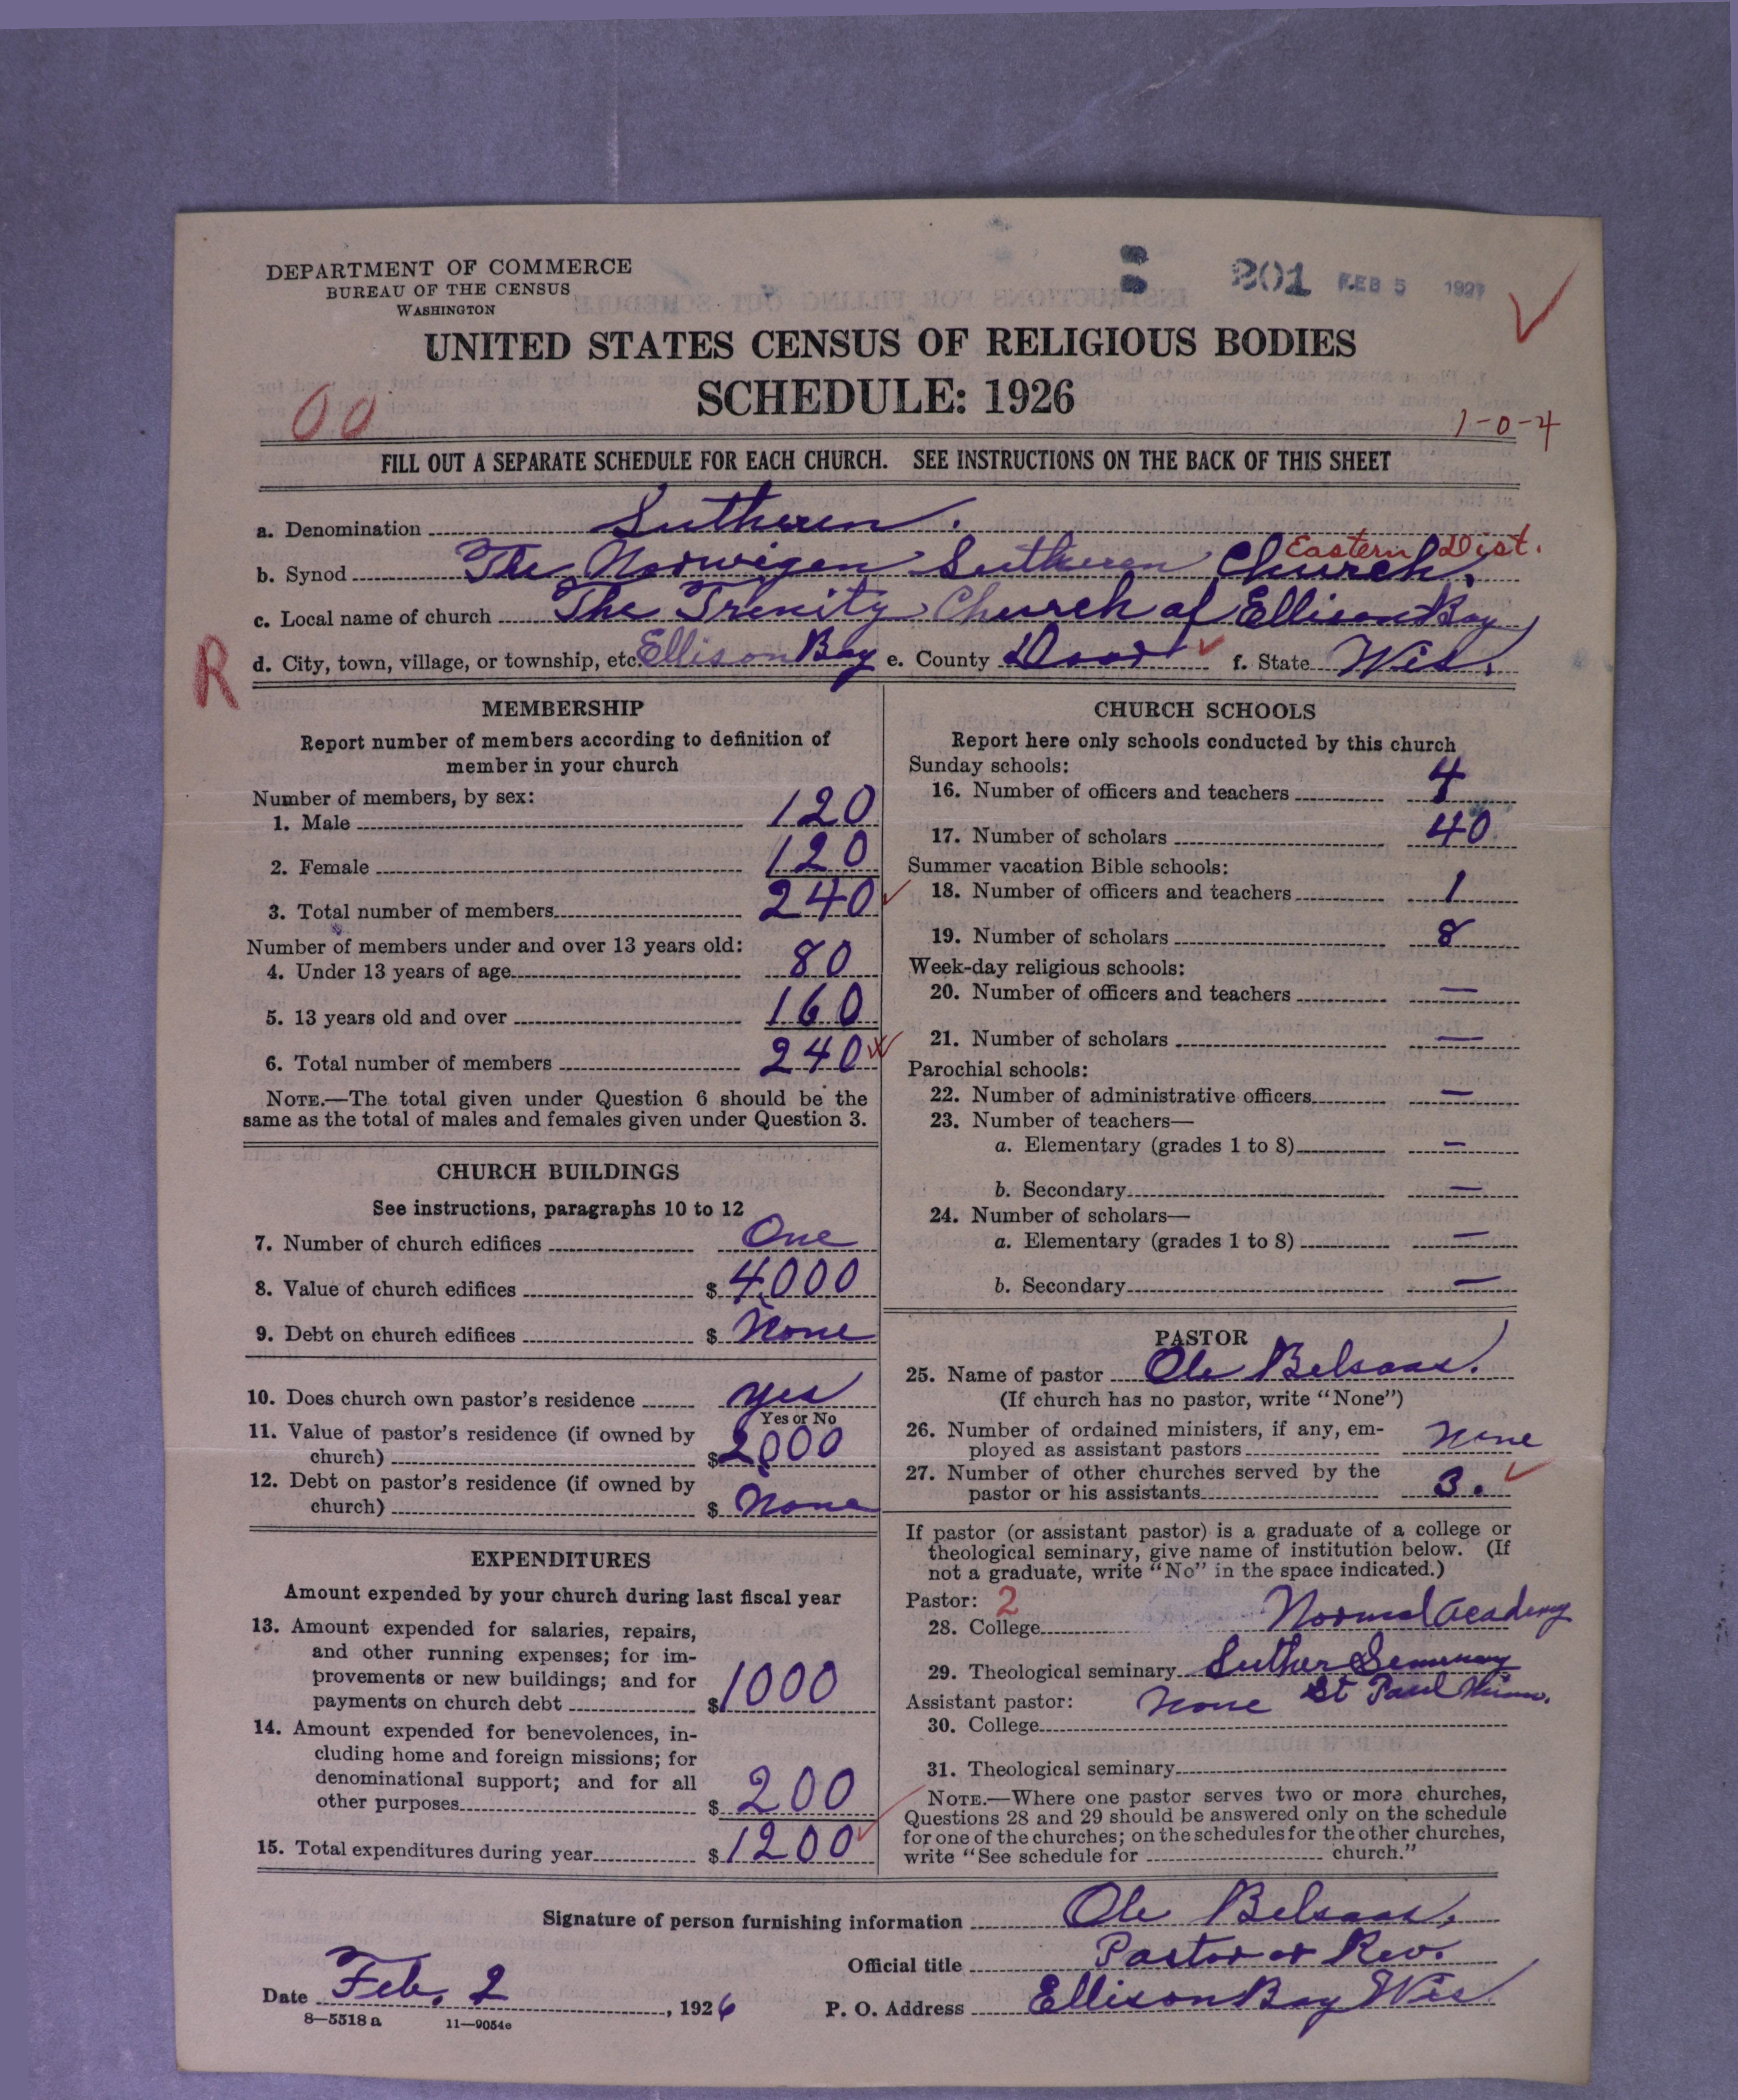 DEPARTMENT OF COMMERCE
BUREAU OF THE CENSUS
WASHINGTON
201 FEB 5 1927
UNITED STATES CENSUS OF RELIGIOUS BODIES
SCHEDULE: 1926
00
1-0-4
FILL OUT A SEPARATE SCHEDULE FOR EACH CHURCH. SEE INSTRUCTIONS ON THE BACK OF THIS SHEET
a. Denomination Lutheren.
Eastern Dist.
b. Synod The Norwigen Lutheren Church.
c. Local name of church The Trinity Church of Ellison Bay
R
d. City, town, village, or township, etc. Ellison Bay e. County Door f. State Wis.
MEMBERSHIP
Report number of members according to definition of
member in your church
Number of members, by sex:
1. Male 120
2. Female 120
3. Total number of members 240
Number of members under and over 13 years old:
4. Under 13 years of age 80
5. 13 years old and over 160
6. Total number of members 240
NOTE.—The total given under Question 6 should be the
same as the total of males and females given under Question 3.
CHURCH BUILDINGS
See instructions, paragraphs 10 to 12
7. Number of church edifices One
8. Value of church edifices $ 4,000
9. Debt on church edifices $ None
10. Does church own pastor's residence yes
Yes or No
11. Value of pastor's residence (if owned by
church) $ 2,000
12. Debt on pastor's residence (if owned by
church) $ None
EXPENDITURES
Amount expended by your church during last fiscal year
13. Amount expended for salaries, repairs,
and other running expenses; for im-
provements or new buildings; and for
payments on church debt $ 1000
14. Amount expended for benevolences, in-
cluding home and foreign missions; for
denominational support; and for all
other purposes $ 200
15. Total expenditures during year $ 1200
CHURCH SCHOOLS
Report here only schools conducted by this church
Sunday schools:
16. Number of officers and teachers 4
17. Number of scholars 40
Summer vacation Bible schools:
18. Number of officers and teachers 1
19. Number of scholars 8
Week-day religious schools:
20. Number of officers and teachers —
21. Number of scholars —
Parochial schools:
22. Number of administrative officers —
23. Number of teachers—
a. Elementary (grades 1 to 8) —
b. Secondary —
24. Number of scholars—
a. Elementary (grades 1 to 8) —
b. Secondary —
PASTOR
25. Name of pastor Ole Belsaas.
(If church has no pastor, write "None")
26. Number of ordained ministers, if any, em-
ployed as assistant pastors None
27. Number of other churches served by the
pastor or his assistants 3.
If pastor (or assistant pastor) is a graduate of a college or
theological seminary, give name of institution below. (If
not a graduate, write "No" in the space indicated.)
Pastor: 2
28. College Normal Academy
29. Theological seminary Luther Semenary
St Paul Minn.
Assistant pastor: None
30. College
31. Theological seminary
NOTE.—Where one pastor serves two or more churches,
Questions 28 and 29 should be answered only on the schedule
for one of the churches; on the schedules for the other churches,
write "See schedule for church."
Signature of person furnishing information Ole Belsaas.
Official title Pastor or Rev.
Date Feb. 2, 1926
P. O. Address Ellison Bay Wis.
8—5518 a 11—9054e